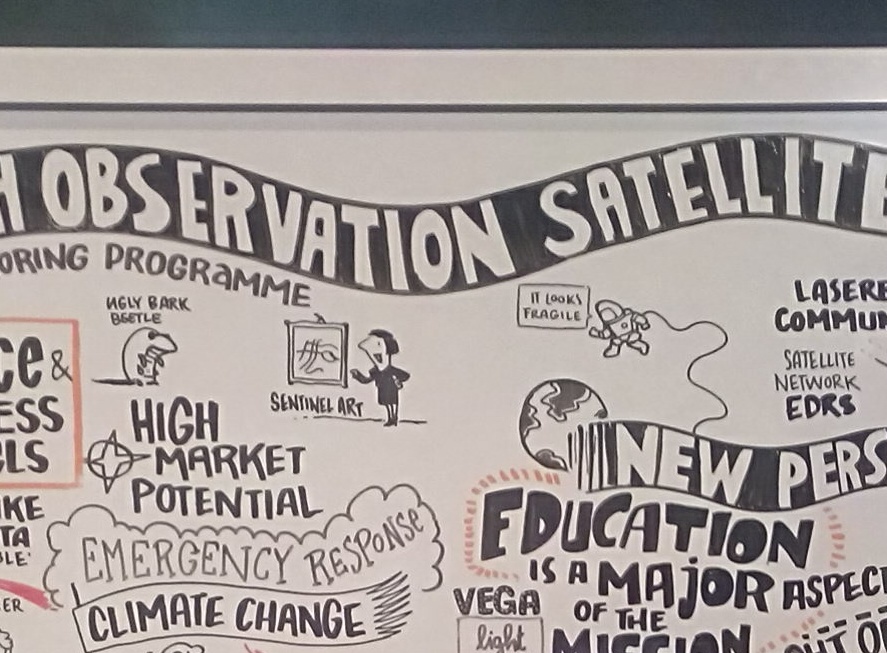 H OBSERVATION SATELLITE
ORING PROGRAMME
UGLY BARK
BEETLE
SENTINEL ART
IT LOOKS
FRAGILE
LASER
COMMUN
SATELLITE
NETWORK
EDRS
CE &
ESS
LS
HIGH
MARKET
POTENTIAL
NEW PERS
KE
TA
BLE'
ER
EMERGENCY RESPONSE
CLIMATE CHANGE
EDUCATION
IS A MAJOR ASPEC
OF THE
MISSION
VEGA
light
OUT OF